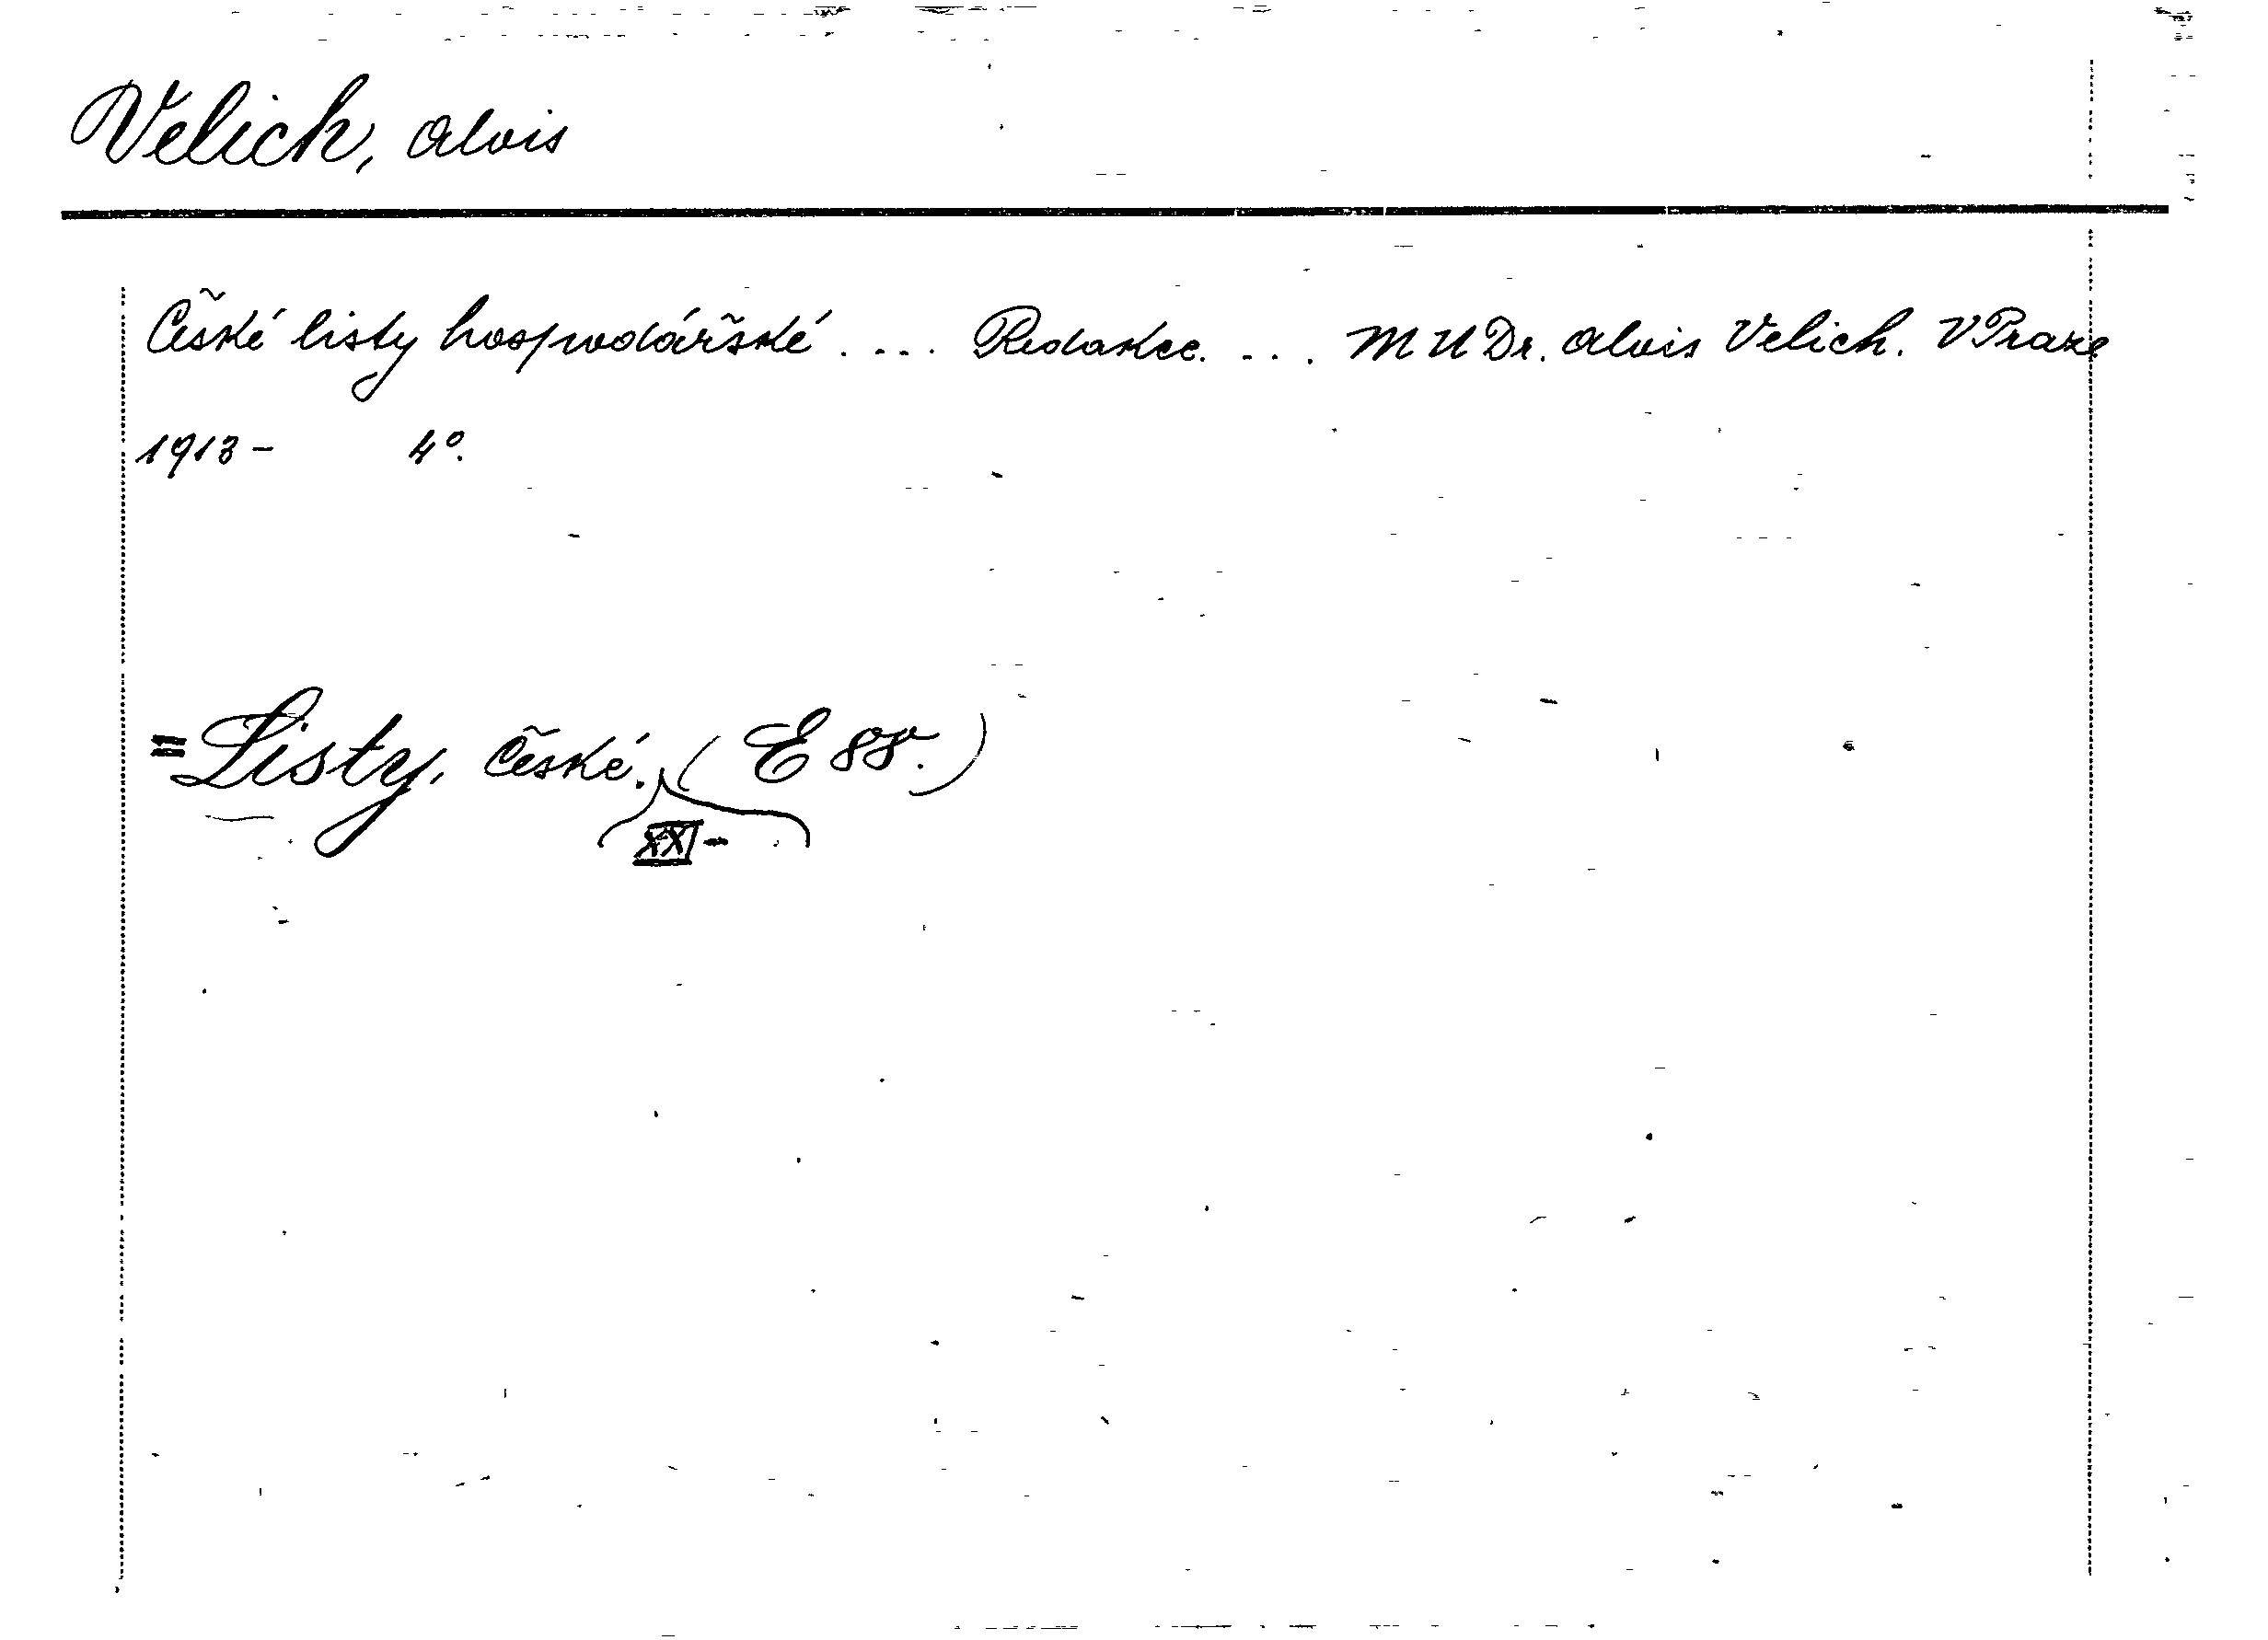 Velich, Alois
České listy hospodářské . . . . Redakce. . . . MUDr. Alois Velich. V Praze
1913 – 4°.
= Listy, České. (E 88.)
XXI –